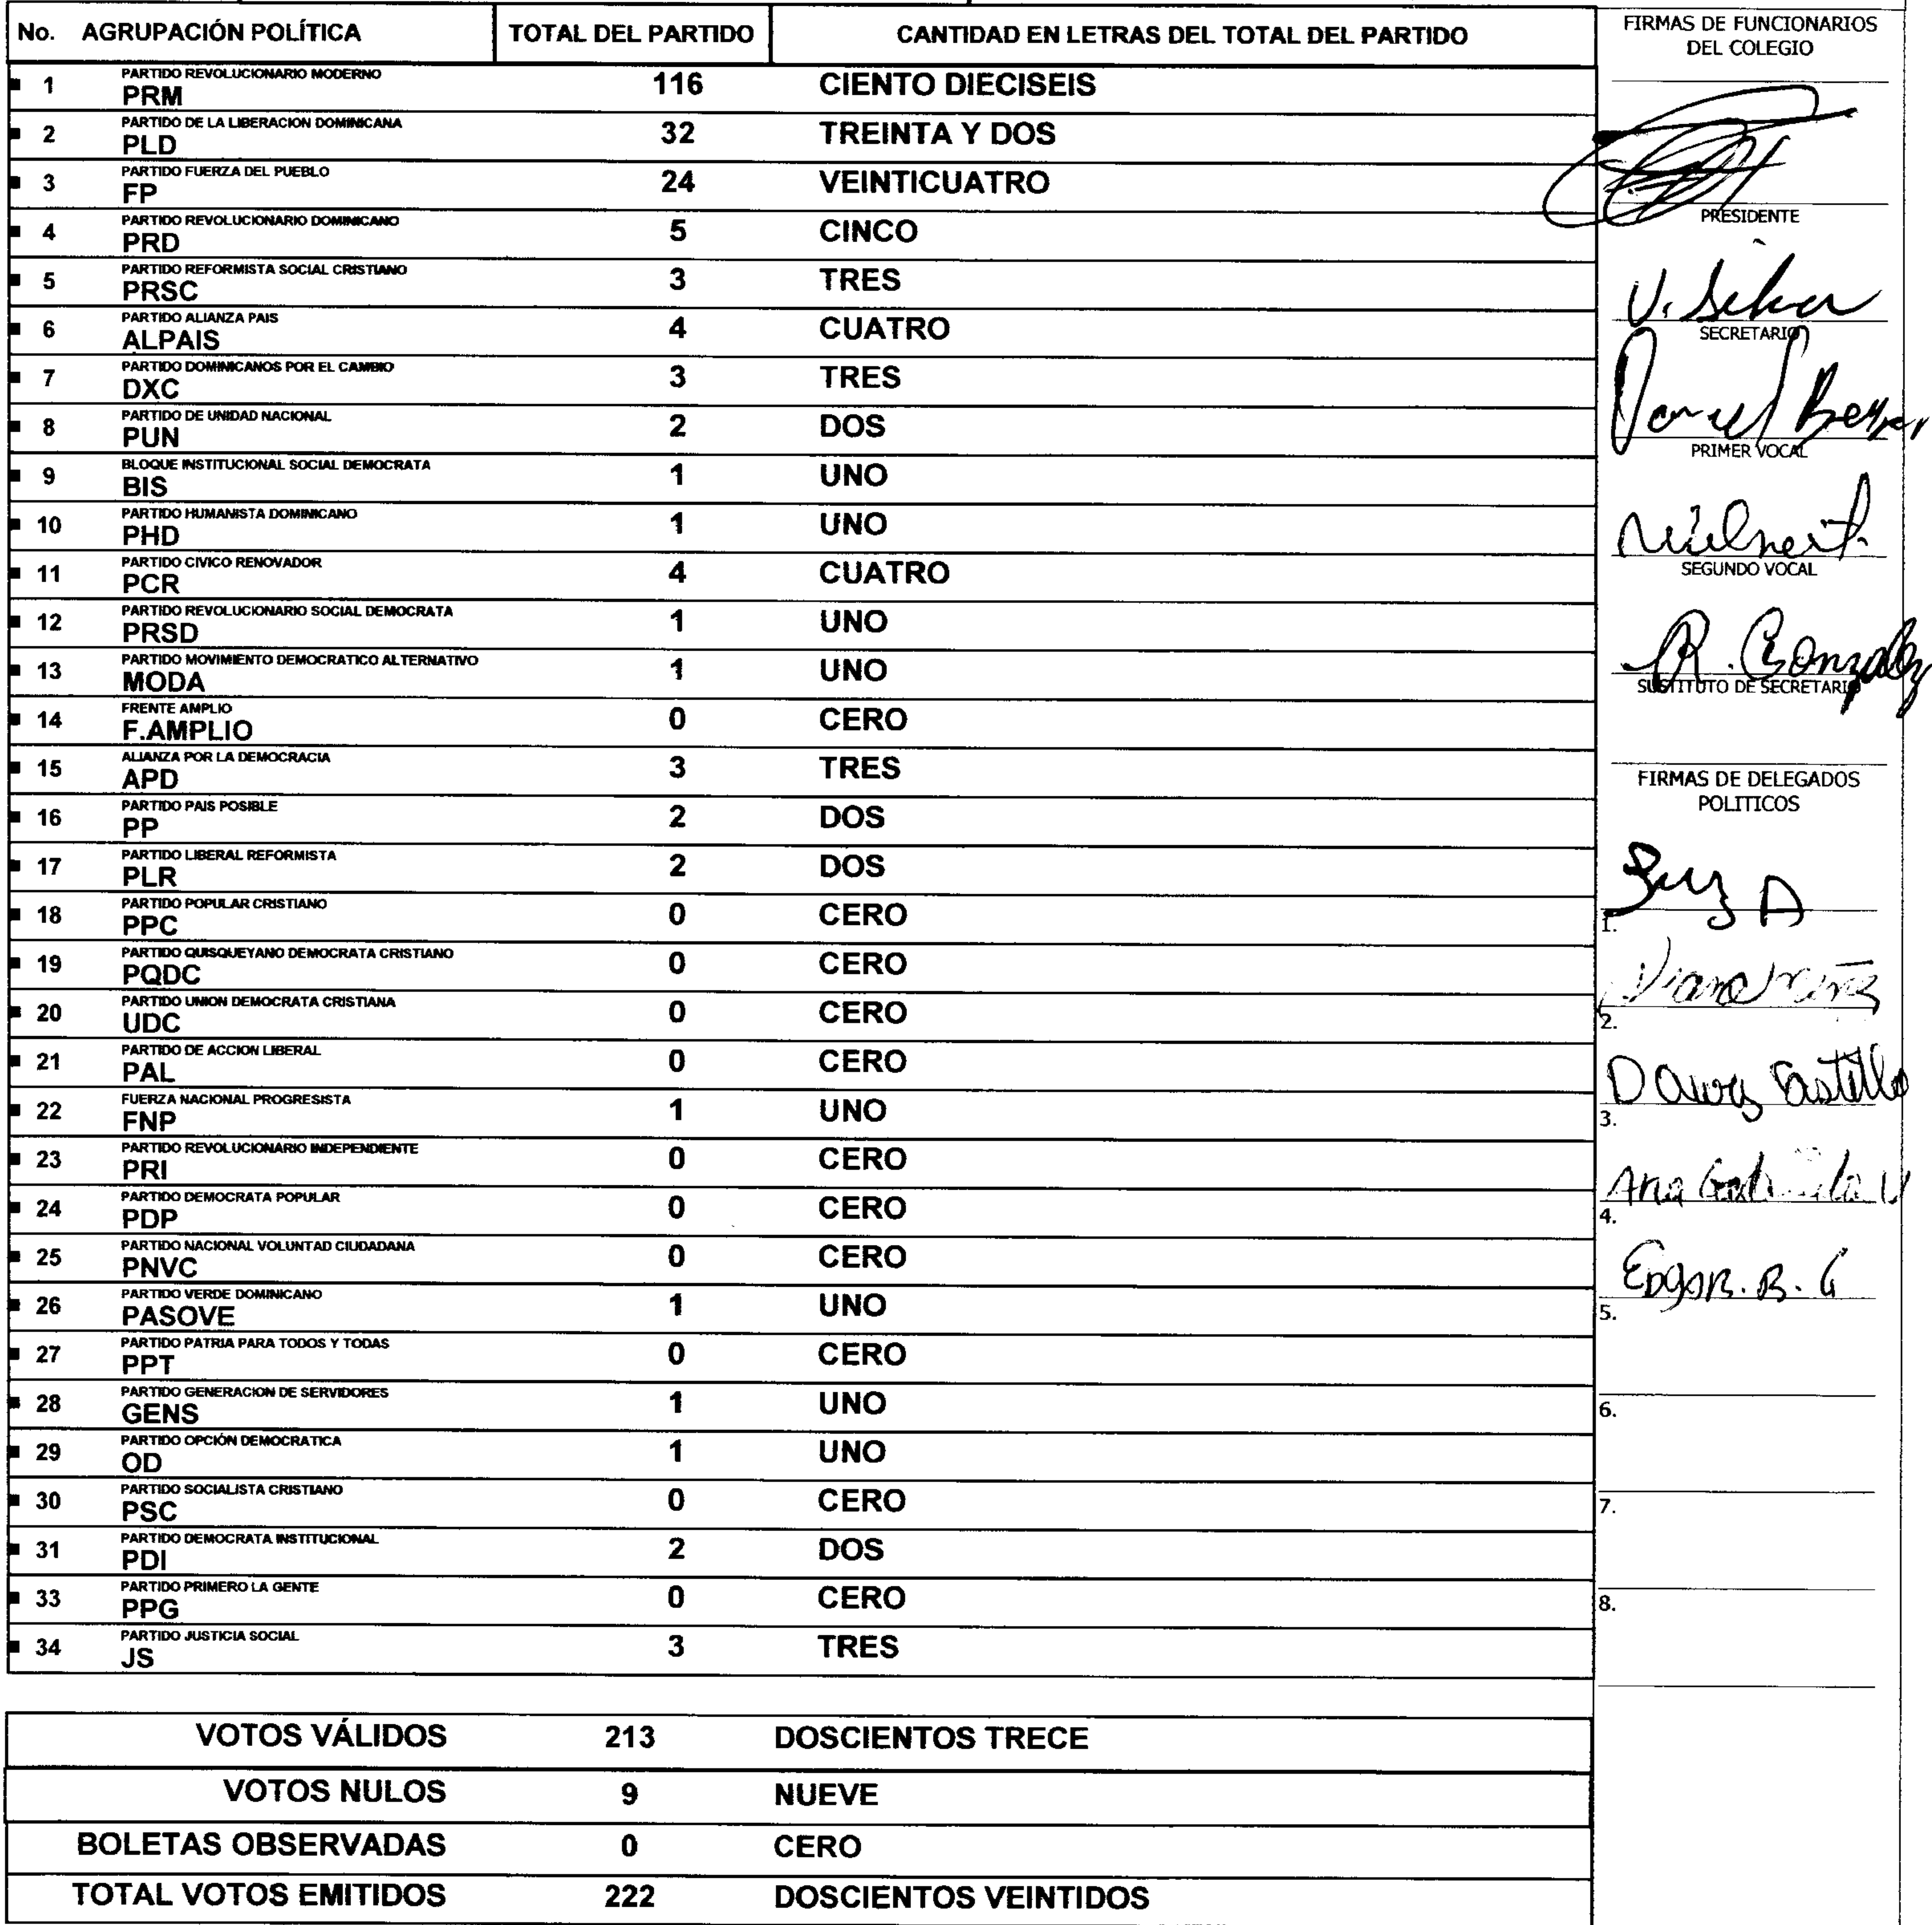 No. AGRUPACIÓN POLÍTICA TOTAL DEL PARTIDO CANTIDAD EN LETRAS DEL TOTAL DEL PARTIDO
PARTIDO REVOLUCIONARIO MODERNO
1 PRM 116 CIENTO DIECISEIS
PARTIDO DE LA LIBERACION DOMINICANA
2 PLD 32 TREINTA Y DOS
PARTIDO FUERZA DEL PUEBLO
3 FP 24 VEINTICUATRO
PARTIDO REVOLUCIONARIO DOMINICANO
4 PRD 5 CINCO
PARTIDO REFORMISTA SOCIAL CRISTIANO
5 PRSC 3 TRES
PARTIDO ALIANZA PAIS
6 ALPAIS 4 CUATRO
PARTIDO DOMINICANOS POR EL CAMBIO
7 DXC 3 TRES
PARTIDO DE UNIDAD NACIONAL
8 PUN 2 DOS
BLOQUE INSTITUCIONAL SOCIAL DEMOCRATA
9 BIS 1 UNO
PARTIDO HUMANISTA DOMINICANO
10 PHD 1 UNO
PARTIDO CIVICO RENOVADOR
11 PCR 4 CUATRO
PARTIDO REVOLUCIONARIO SOCIAL DEMOCRATA
12 PRSD 1 UNO
PARTIDO MOVIMIENTO DEMOCRATICO ALTERNATIVO
13 MODA 1 UNO
FRENTE AMPLIO
14 F.AMPLIO 0 CERO
ALIANZA POR LA DEMOCRACIA
15 APD 3 TRES
PARTIDO PAIS POSIBLE
16 PP 2 DOS
PARTIDO LIBERAL REFORMISTA
17 PLR 2 DOS
PARTIDO POPULAR CRISTIANO
18 PPC 0 CERO
PARTIDO QUISQUEYANO DEMOCRATA CRISTIANO
19 PQDC 0 CERO
PARTIDO UNION DEMOCRATA CRISTIANA
20 UDC 0 CERO
PARTIDO DE ACCION LIBERAL
21 PAL 0 CERO
FUERZA NACIONAL PROGRESISTA
22 FNP 1 UNO
PARTIDO REVOLUCIONARIO INDEPENDIENTE
23 PRI 0 CERO
PARTIDO DEMOCRATA POPULAR
24 PDP 0 CERO
PARTIDO NACIONAL VOLUNTAD CIUDADANA
25 PNVC 0 CERO
PARTIDO VERDE DOMINICANO
26 PASOVE 1 UNO
PARTIDO PATRIA PARA TODOS Y TODAS
27 PPT 0 CERO
PARTIDO GENERACION DE SERVIDORES
28 GENS 1 UNO
PARTIDO OPCIÓN DEMOCRATICA
29 OD 1 UNO
PARTIDO SOCIALISTA CRISTIANO
30 PSC 0 CERO
PARTIDO DEMOCRATA INSTITUCIONAL
31 PDI 2 DOS
PARTIDO PRIMERO LA GENTE
33 PPG 0 CERO
PARTIDO JUSTICIA SOCIAL
34 JS 3 TRES
VOTOS VÁLIDOS 213 DOSCIENTOS TRECE
VOTOS NULOS 9 NUEVE
BOLETAS OBSERVADAS 0 CERO
TOTAL VOTOS EMITIDOS 222 DOSCIENTOS VEINTIDOS
FIRMAS DE FUNCIONARIOS
DEL COLEGIO
PRESIDENTE
SECRETARIO
PRIMER VOCAL
SEGUNDO VOCAL
R. Gonzalez
SUSTITUTO DE SECRETARIO
FIRMAS DE DELEGADOS
POLITICOS
1.
2.
Castillo
3.
Ana
4.
Edgar. B. G
5.
6.
7.
8.